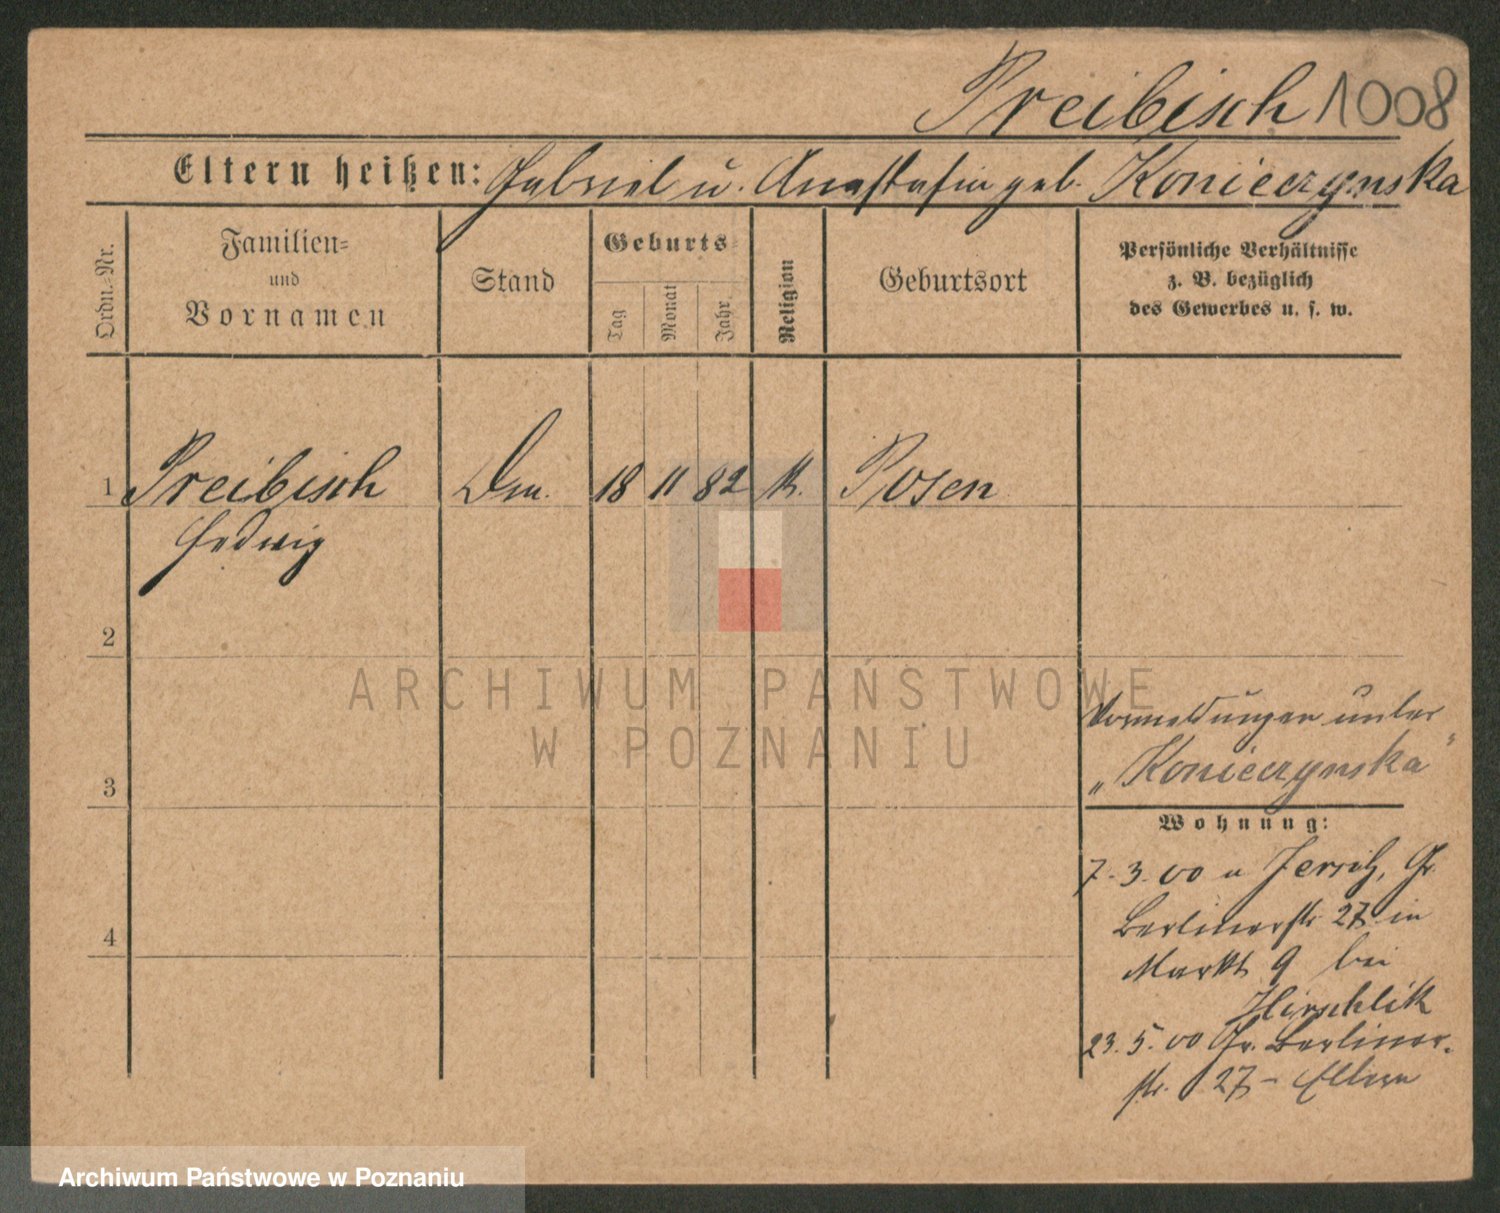 Preibisch 1008
Eltern heißen: Gabriel u. Anastasia geb. Konieczynska
Ordn.-Nr.
Familien-
und
Vornamen
Stand
Geburts-
Tag
Monat
Jahr.
Religion
Geburtsort
Persönliche Verhältnisse
z. B. bezüglich
des Gewerbes u. s. w.
1 Preibisch 18 11 82 k. Posen
Hedwig
2
3
4
ARCHIWUM PAŃSTWOWE
W POZNANIU
Vormeldungen unter
„Konieczynska"
Wohnung:
7. 3. 00 Jersitz, Gr.
Berlinerstr 27 in
Markt 9 bei
Hirschlik
23. 5. 00 Gr. Berliner-
str. 27 – Eltern
Archiwum Państwowe w Poznaniu